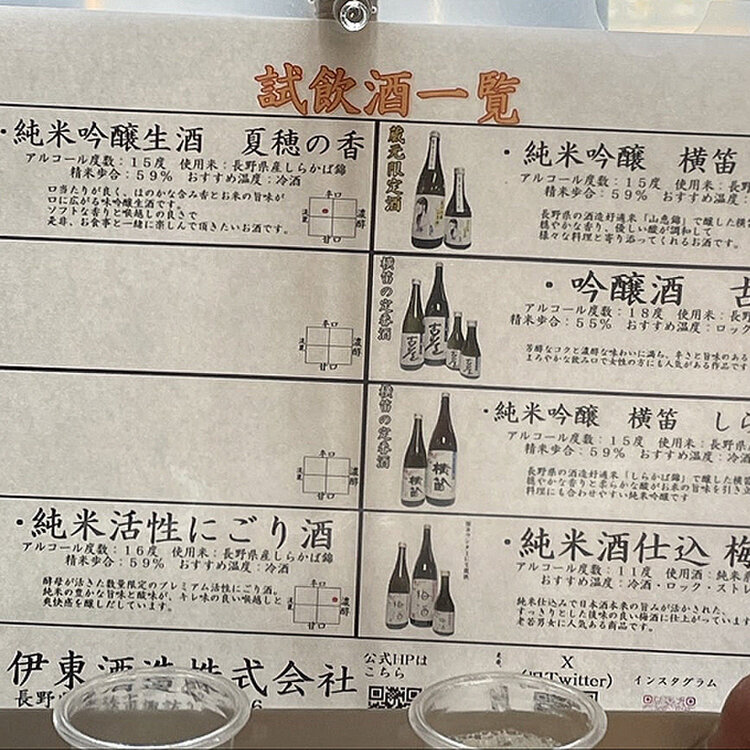 試飲酒一覧
・純米吟醸生酒　夏穂の香
アルコール度数：15度　使用米：長野県産しらかば錦
精米歩合：59%　おすすめ温度：冷酒
口当たりが良く、ほのかな含み香とお米の旨味が
口に広がる味吟醸生酒です。
ソフトな香りと喉越しの良さで
是非、お食事と一緒に楽しんで頂きたいお酒です。
辛口
濃醇
淡麗
甘口
蔵元限定酒
・純米吟醸　横笛
アルコール度数：15度　使用米：長野
精米歩合：59%　おすすめ温度：
長野県の酒造好適米「山恵錦」で醸した横笛
穏やかな香り、優しい酸が調和して
様々な料理と寄り添ってくれるお酒です。
辛口
濃醇
淡麗
甘口
横笛の定番酒
・吟醸酒　古
アルコール度数：18度　使用米：長
精米歩合：55%　おすすめ温度：ロック
芳醇なコクと濃醇な味わいに満ね、辛さと旨味のある
まろやかな飲み口で女性の方にも人気がある作品です
辛口
濃醇
淡麗
甘口
横笛の定番酒
横笛
・純米吟醸　横笛　しら
アルコール度数：15度　使用米：長野県
精米歩合：59%　おすすめ温度：
長野県の酒造好適米「しらかば錦」で醸した横笛
穏やかな香りと柔らかな酸がお米の旨味を引き
料理にも合わせやすい純米吟醸です
・純米活性にごり酒
アルコール度数：16度　使用米：長野県産しらかば錦
精米歩合：59%　おすすめ温度：冷酒
酵母が活きた数量限定のプレミアム活性にごり酒。
純米の豊かな旨味と酸味が、キレ味の良い喉越しと
爽快感を醸しだしています。
濃醇
甘口
・純米酒仕込 梅
アルコール度数：11度　使用酒：純米
おすすめ温度：冷酒・ロック・スト
純米仕込みで日本酒本来の旨みが活かされた、
すっきりとした後味の良い梅酒に仕上がっています
老若男女に人気のある商品です。
伊東酒造株式会社
長野
6
公式HPは
こちら
X
(旧Twitter)
インスタグラム